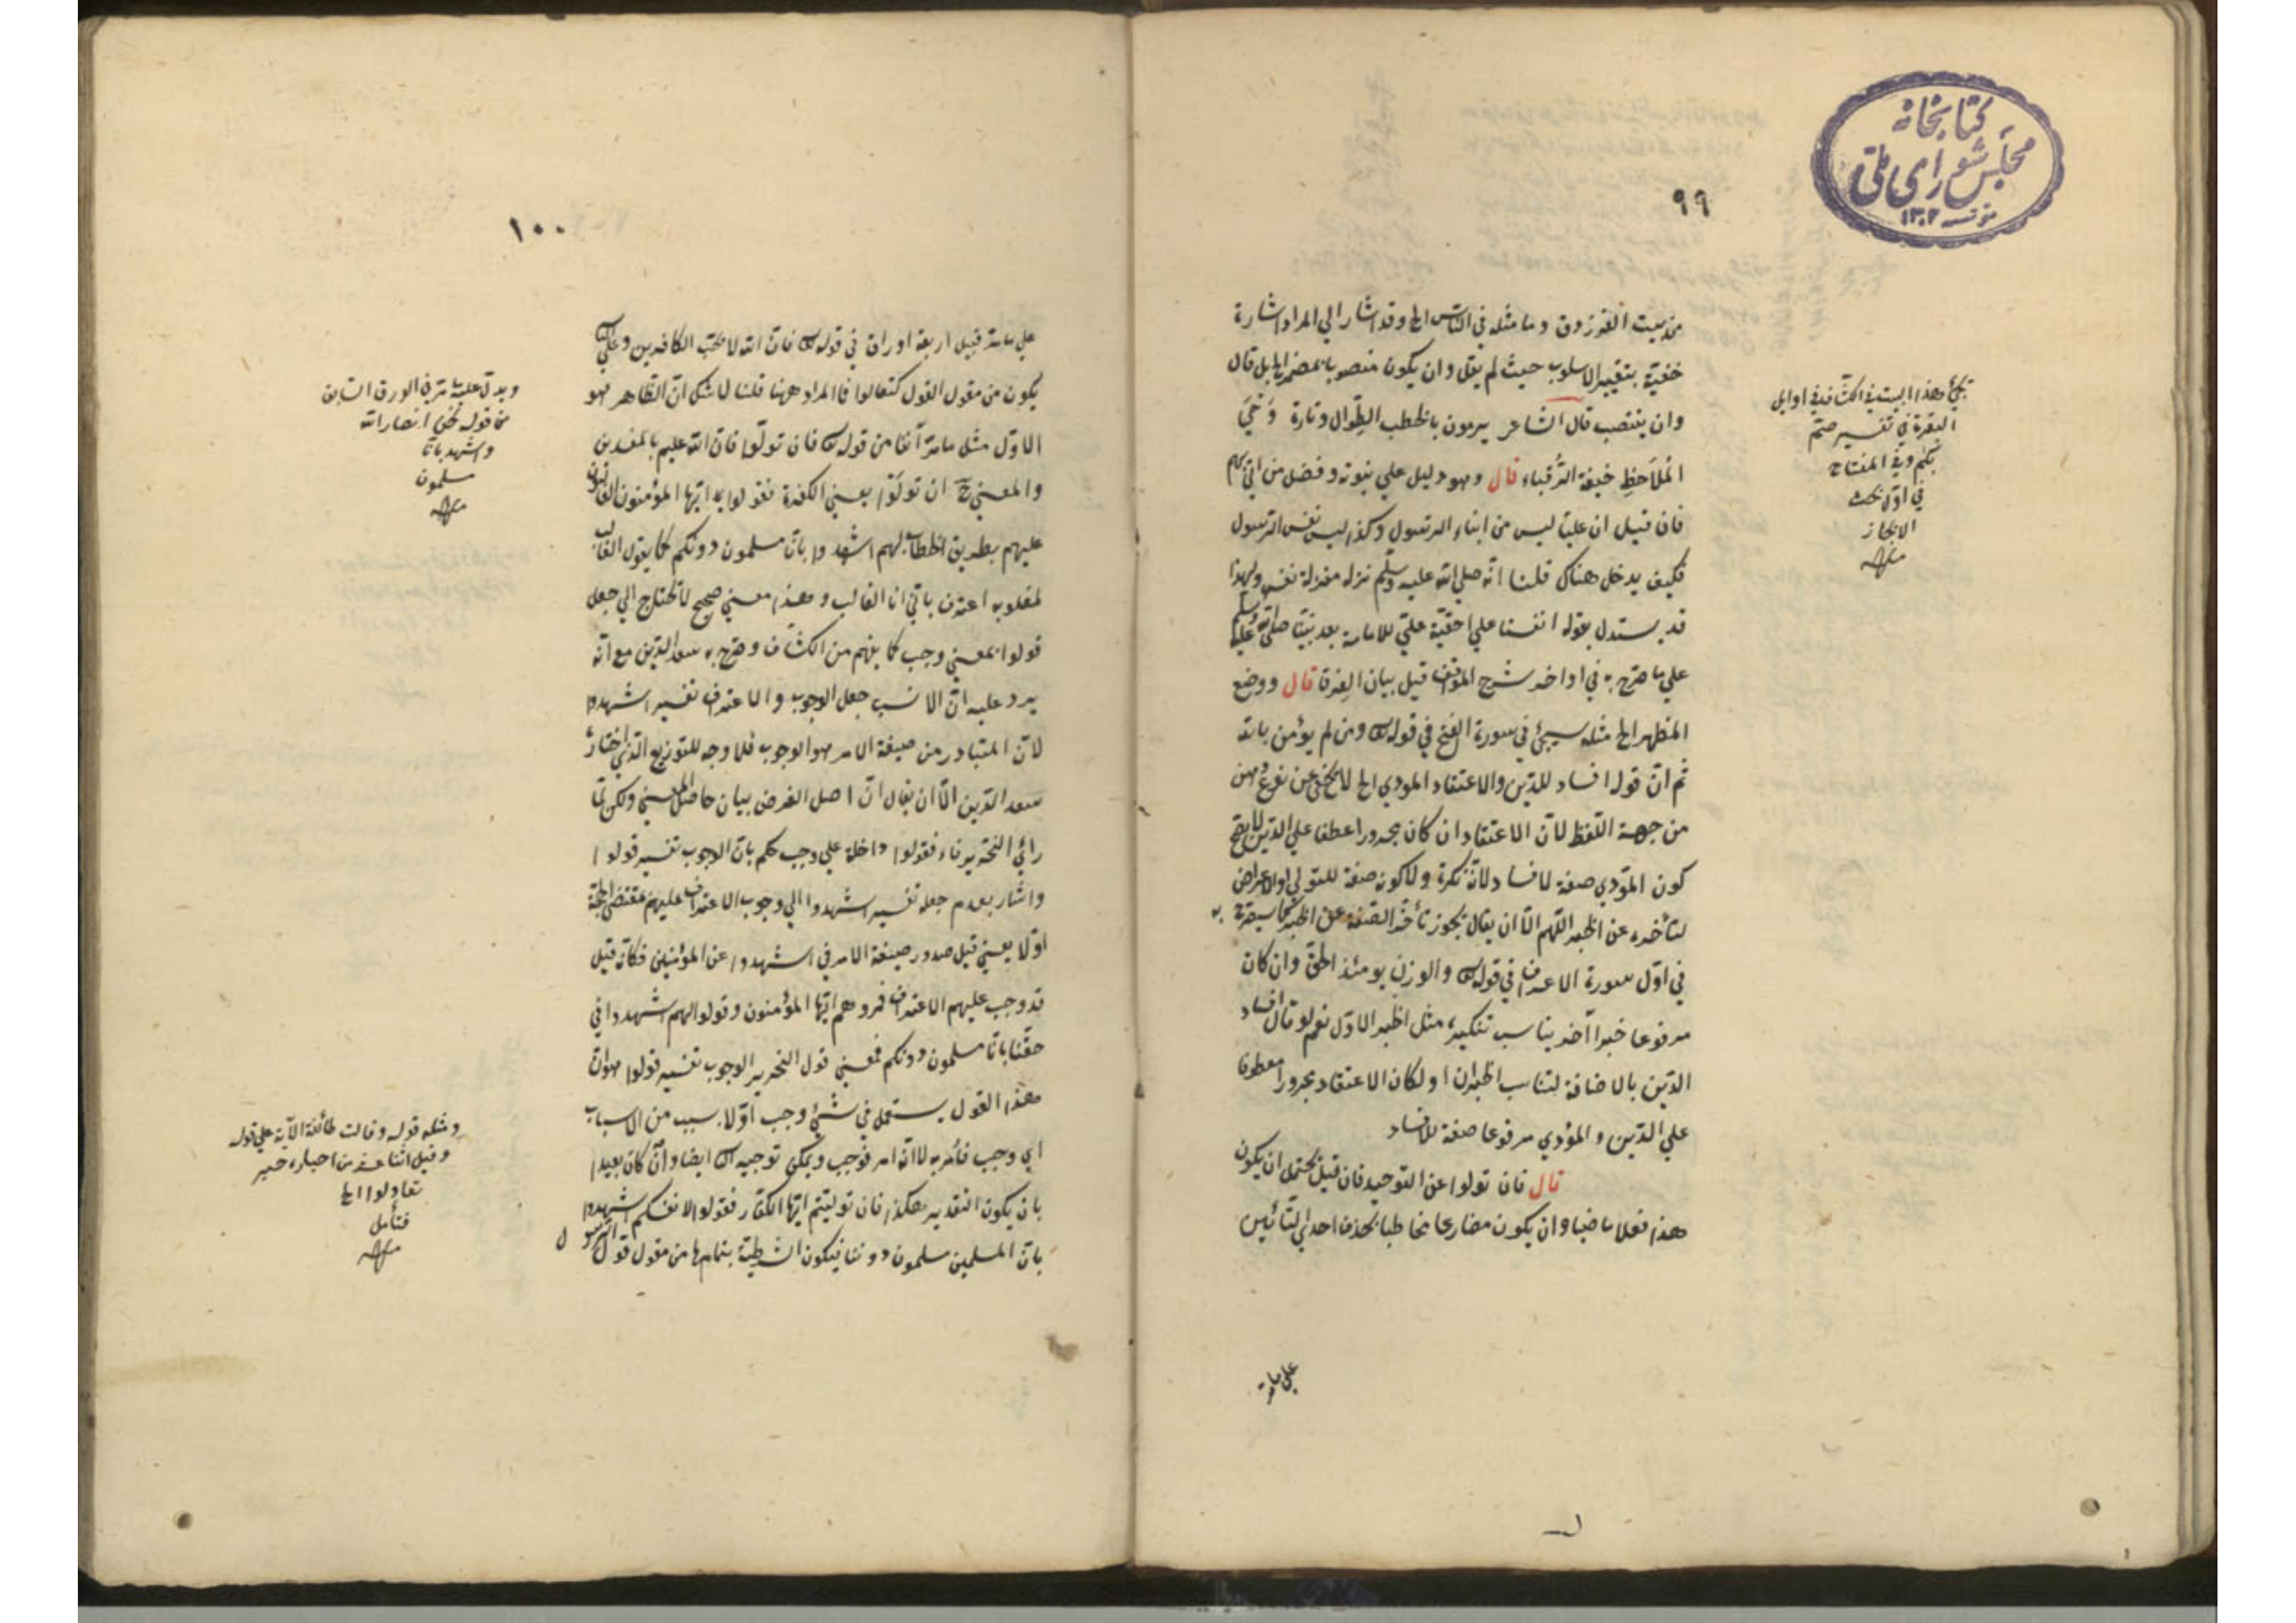 كتابخانه
مجلس شورای ملی
مؤسسه ١٣٠٢
٩٩
من بيت الفرزدق وما مثله في الناس الخ وقد اشار الي المراد اشارة
خفية بتغيير الاسلوب حيث لم يقل وان يكون منصوبا بمضمر الخ بل قال
وان ينتصب قال الشاعر يرمون بالخطب الطوال وتارة وَحْيَ
المُلاحِظِ خيفة الرُّقباء قال وهو دليل علي نبوته وفضل من اتي بهم
فان قيل ان عليا ليس من ابناء الرسول وكذا ليس نفس الرسول
فكيف يدخل هناك قلنا انه صلي الله عليه وسلم نزله منزلة نفسه ولهذا
قد يستدل بقوله انفسنا علي احقية علي للامامة بعد نبينا صلي الله عليه وسلم
علي ما صرح به في اواخر شرح المواقف قبل بيان الفرق قال ووضع
المظهر الخ مثله سيجئ في سورة الفتح في قوله تعالى ومن لم يؤمن بالله
ثم ان قوله افساد للدين والاعتقاد المودي الخ لا يخفي عن نوع وهن
من جهة اللفظ لان الاعتقاد ان كان مجرورا عطفا علي الدين لا يصح
كون المؤدي صفة لافساد لانه نكرة ولا كونه صفة للتولي والاعراض
لتأخره عن الخبر اللهم الا ان يقال يجوز تأخر الصفة عن الخبر كما سيصرح به
في اول سورة الاعراف في قوله تعالى والوزن يومئذ الحق وان كان
مرفوعا خبرا آخر يناسب تنكيره مثل الخبر الاول نعم لو قال افساد
الدين بالاضافة لتناسب الخبران او لكان الاعتقاد مجرورا معطوفا
علي الدين والمؤدي مرفوعا صفة للافساد
قال فان تولوا عن التوحيد فان قيل يحتمل ان يكون
هذا فعلا ماضيا وان يكون مضارعا مخاطبا بحذف احدي التائين
علي ما مر
يجئ هذا البيت في الكشاف في اوايل
البقرة في تفسير صم
بكم وفي المفتاح
في اول بحث
الايجاز
منه
١٠٠
علي ما مر قبيل اربعة اوراق في قوله تعالى فان الله لا يحب الكافرين وعلي
يكون من مقول القول كتعالوا فما المراد ههنا قلنا لا شك ان الظاهر هو
الاول مثل ما مر آنفا من قوله تعالى فان تولوا فان الله عليم بالمفسدين
والمعني ح ان تولوا يعني الكفرة فقولوا يا ايها المؤمنون الفائقون
عليهم بطريق الخطاب لهم اشهدوا بانا مسلمون دونكم كما يقول الغالب
لمغلوبه اعترف باني انا الغالب وهذا معني صحيح لا تحتاج الي جعل
قولوا بمعني وجب كما يفهم من الكشاف وصرح به سعد الدين مع انه
يرد عليه ان الانسب جعل الوجوب والاعتراف تفسير اشهدوا
لان المتبادر من صيغة الامر هو الوجوب فلا وجه للتوزيع الذي اختاره
سعد الدين الا ان يقال ان اصل الغرض بيان حاصل المعني ولكن لما
رأي النحرير فاء فقولوا داخلة علي وجب حكم بان الوجوب تفسير قولوا
واشار بعدم جعله تفسير اشهدوا الي وجوب الاعتراف عليهم بمقتضي الحجة
اولا يعني قبل صدور صيغة الامر في اشهدوا عن المؤمنين فكانه قيل
قد وجب عليهم الاعتراف فمروهم ايها المؤمنون وقولوا لهم اشهدوا في
حقنا بانا مسلمون دونكم فمعني قول النحرير الوجوب تفسير قولوا هو ان
هذا القول يستعمل في شئ وجب اولا بسبب من الاسباب
اي وجب فأمر به لا انه امر فوجب ويمكن توجيه الك ايضا وان كان بعيدا
بان يكون التقدير هكذا فان توليتم ايها الكفار فقولوا لانفسكم اشهدوا
بان المسلمين مسلمون دوننا فيكون الشرطية بتمامها من مقول قول الرسول
ويدل عليه ما مر في الورق السابق
من قوله نحن انصار الله
واشهد بانا
مسلمون
منه
ومثله قوله وقالت طائفة الآية علي قوله
وقيل اثنا عشر من احبار خيبر
تقاولوا الخ
فتأمل
منه